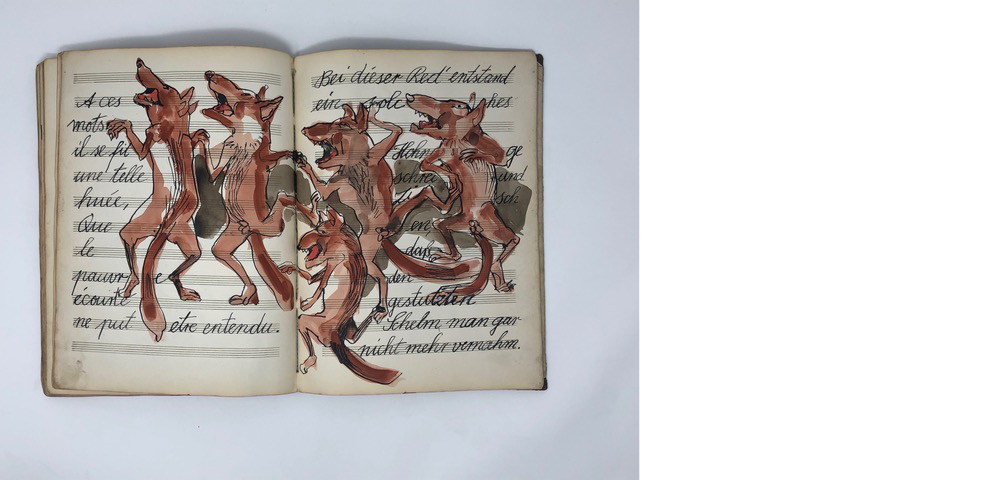 A ces
mots
il se fit
une telle
huée,
Que
le
pauvre
écourté
ne put être entendu.
Bei dieser Red' entstand
ein solches
Hohnge
schrei und
daß
den
gestutzten
Schelm man gar
nicht mehr vernahm.